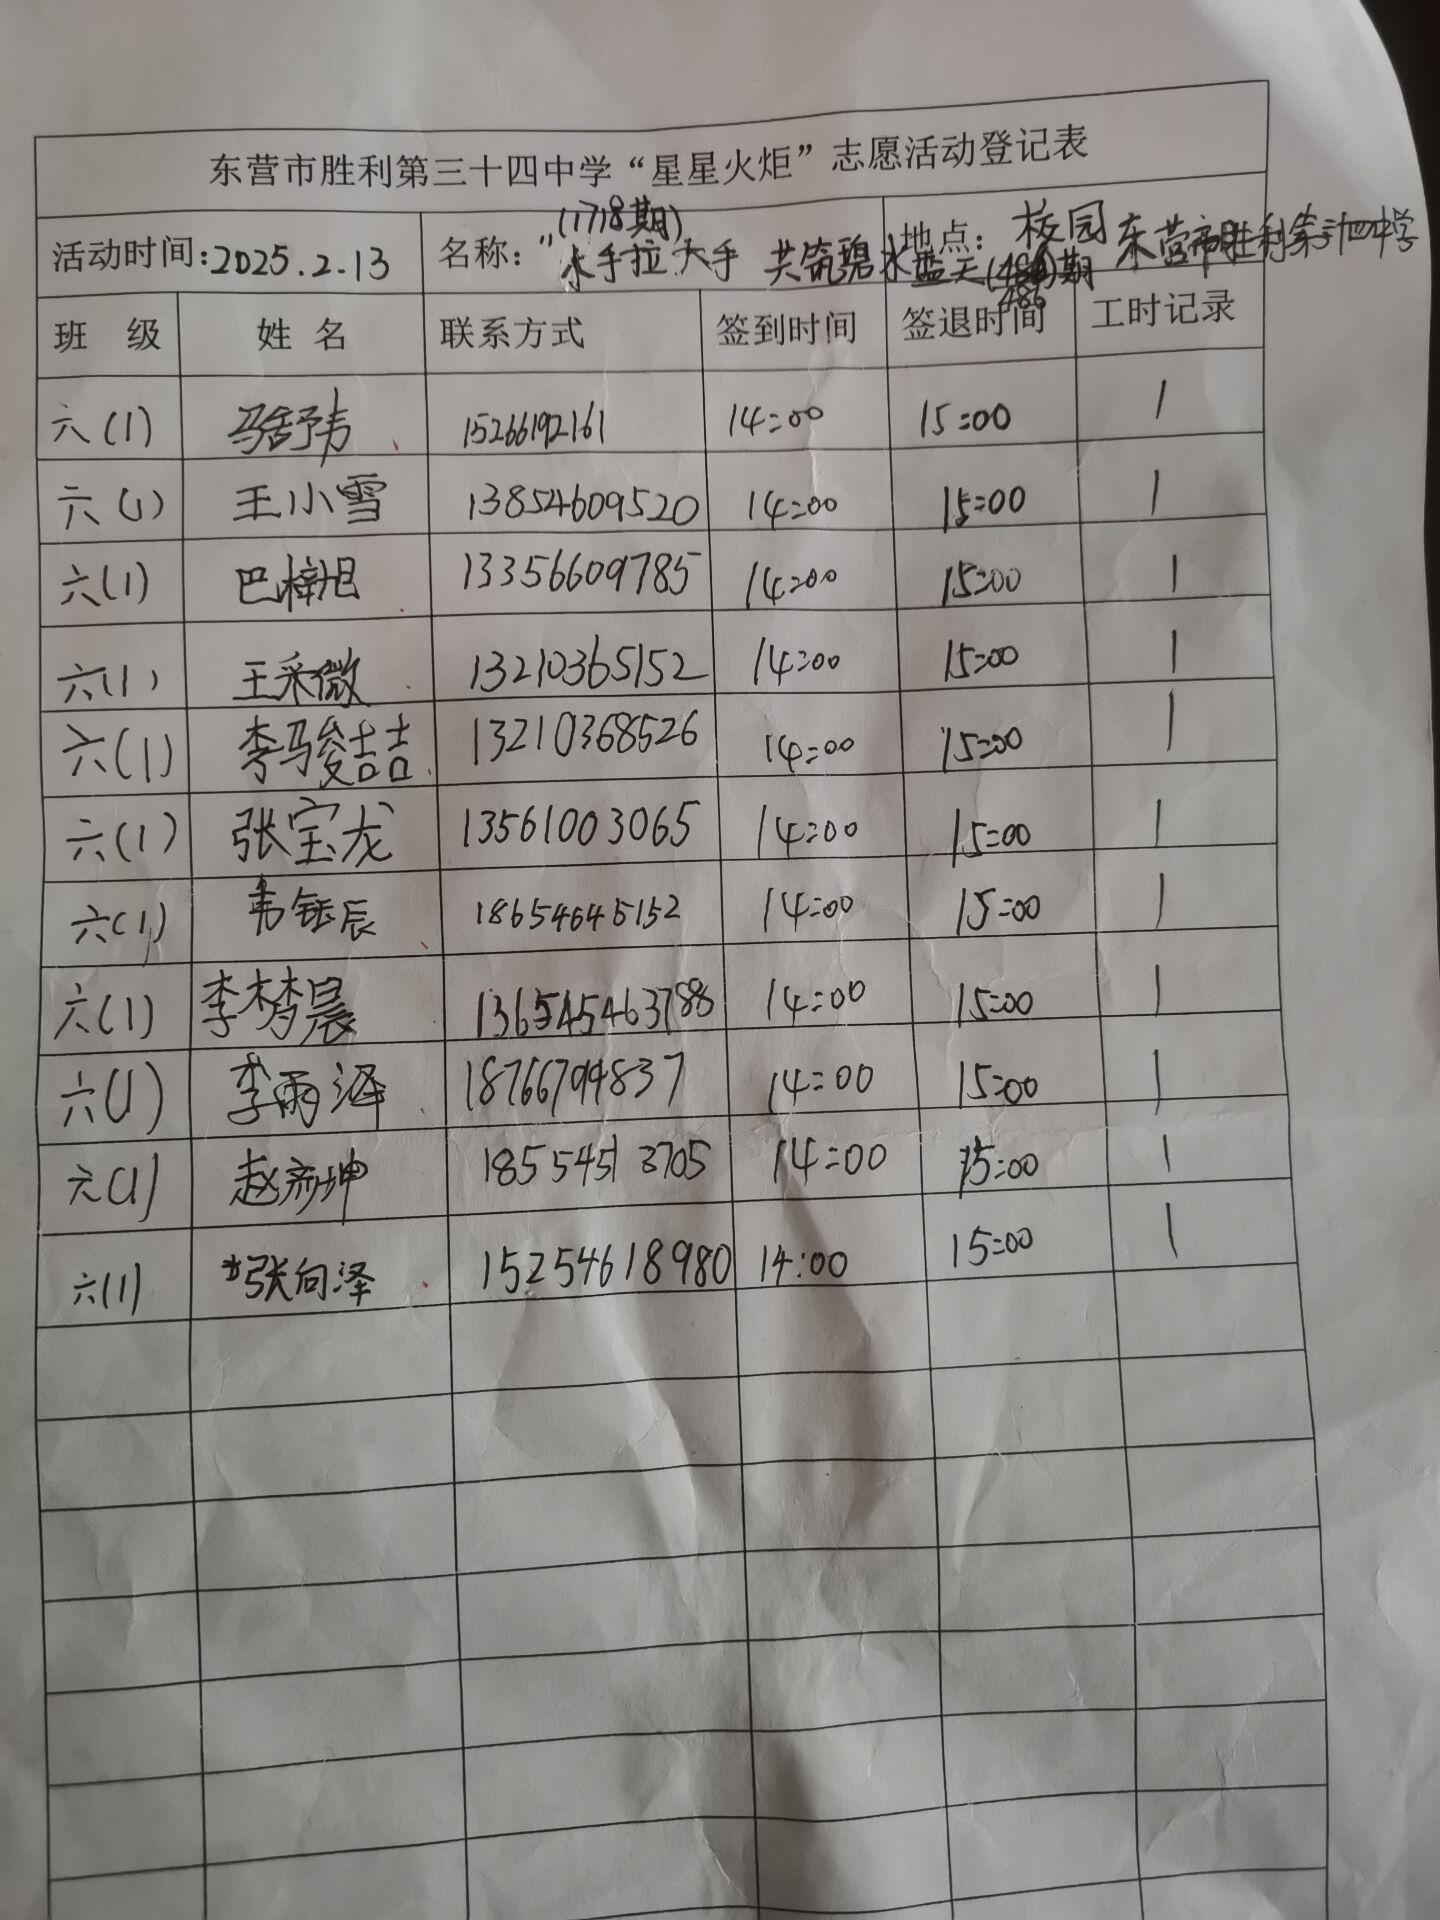 东营市胜利第三十四中学“星星火炬”志愿活动登记表
(1718期)
活动时间:2025.2.13 名称:“小手拉大手 共筑碧水蓝天(486)期 地点: 校园 东营市胜利第三十四中学
486
班 级 姓 名 联系方式 签到时间 签退时间 工时记录
六(1) 15266192161 14:00 15:00 1
六(1) 王小雪 13854609520 14:00 15:00 1
六(1) 巴梓旭 13356609785 14:00 15:00 1
六(1) 王采微 13210365152 14:00 15:00 1
六(1) 李骏喆 13210368526 14:00 15:00 1
六(1) 张宝龙 13561003065 14:00 15:00 1
六(1) 韦钰辰 18654645152 14:00 15:00 1
六(1) 李梦晨 14:00 15:00 1
六(1) 李雨泽 18766799837 14:00 15:00 1
六(1) 赵彦坤 18554513705 14:00 15:00 1
六(1) 张向泽 15254618980 14:00 15:00 1